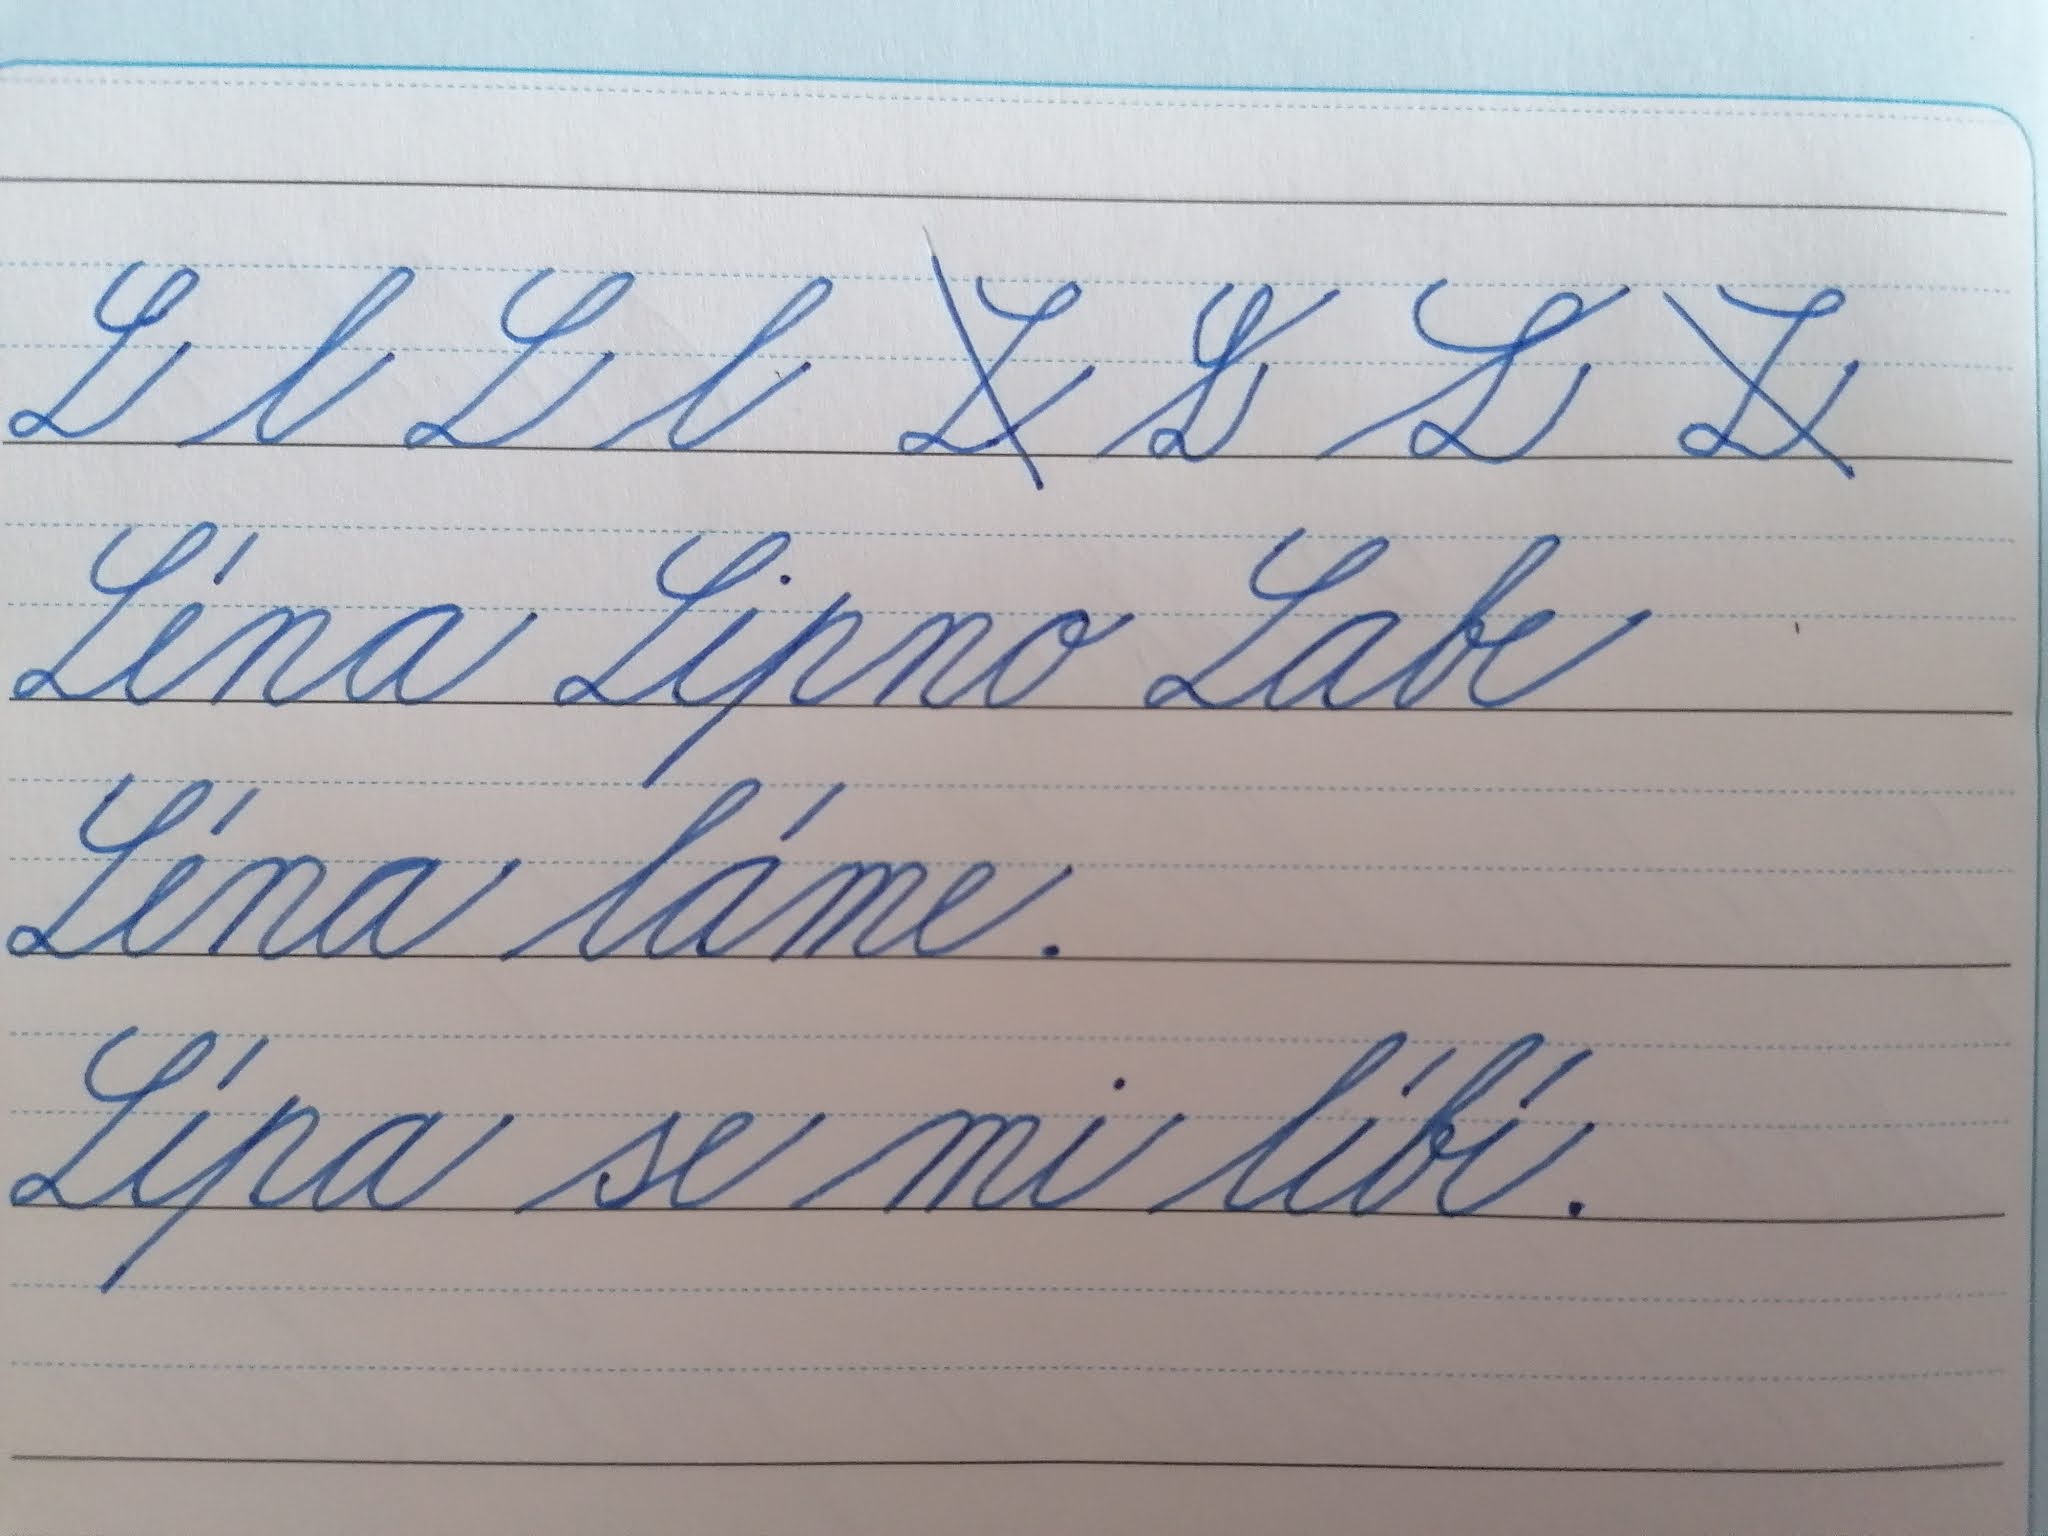 L l L l L L L L
Lína Lipno Labe
Lína láme.
Lípa se mi líbí.